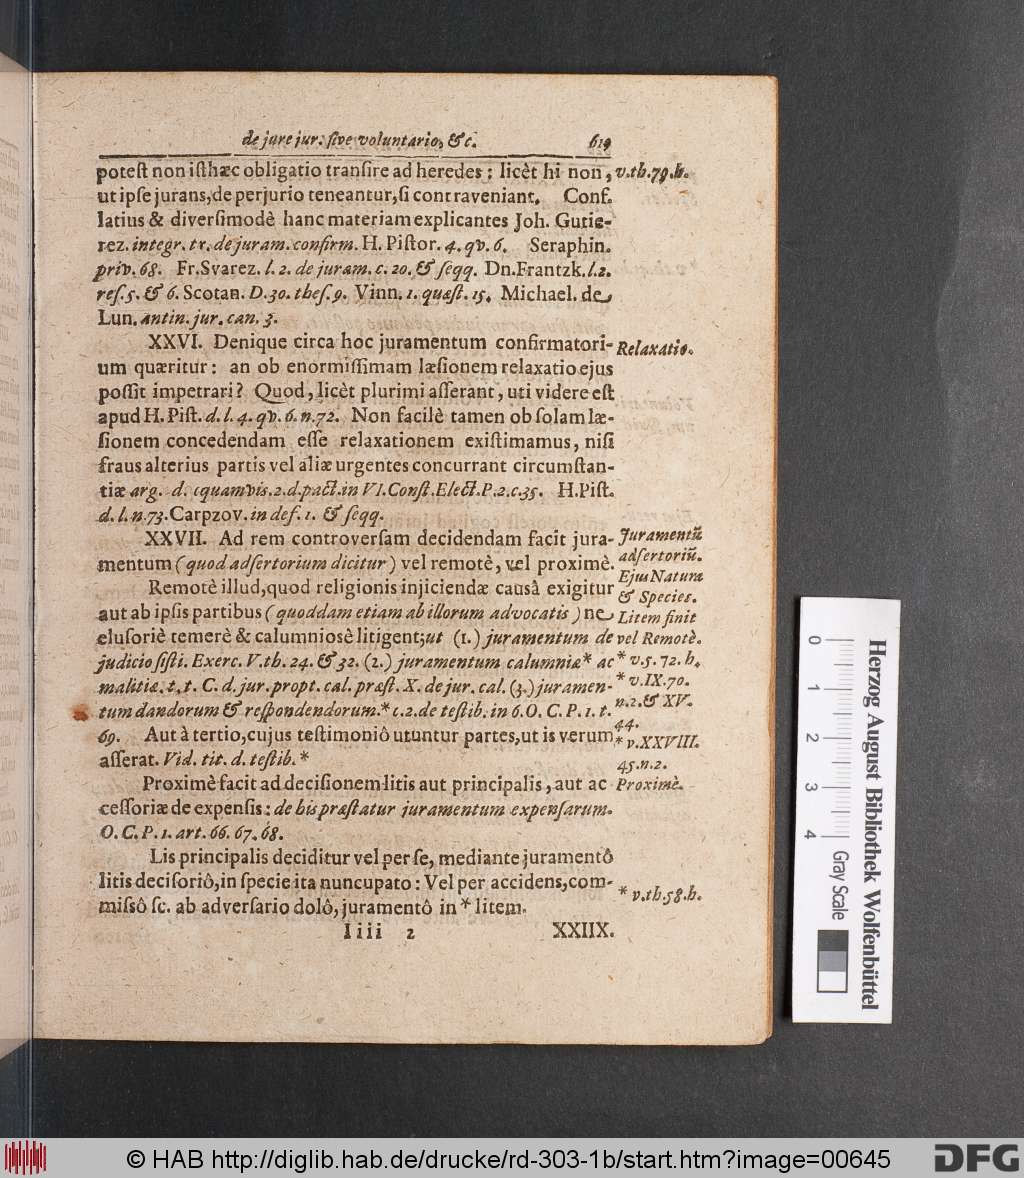 de jure jur. ſive voluntario, &c. 619
poteſt non iſthæc obligatio tranſire ad heredes; licèt hi non,
ut ipſe jurans, de perjurio teneantur, ſi contraveniant. Conf.
latius & diverſimodè hanc materiam explicantes Joh. Gutie-
rez. integr. tr. de juram. confirm. H. Piſtor. 4. qv. 6. Seraphin.
priv. 68. Fr. Svarez. l. 2. de juram. c. 20. & ſeqq. Dn. Frantzk. l. 2.
reſ. 5. & 6. Scotan. D. 30. theſ. 9. Vinn. 1. quæſt. 15. Michael. de
Lun. antin. jur. can. 3.
v. th. 79. h.
XXVI. Denique circa hoc juramentum confirmatori-
um quæritur: an ob enormiſſimam læſionem relaxatio ejus
poſſit impetrari? Quod, licèt plurimi aſſerant, uti videre eſt
apud H. Piſt. d. l. 4. qv. 6. n. 72. Non facilè tamen ob ſolam læ-
ſionem concedendam eſſe relaxationem exiſtimamus, niſi
fraus alterius partis vel aliæ urgentes concurrant circumſtan-
tiæ arg. d. c quamvis. 2. d. pact. in VI. Conſt. Elect. P. 2. c. 35. H. Piſt.
d. l. n. 73. Carpzov. in def. 1. & ſeqq.
Relaxatio.
XXVII. Ad rem controverſam decidendam facit jura-
mentum (quod adſertorium dicitur) vel remotè, vel proximè.
Remotè illud, quod religionis injiciendæ causâ exigitur
aut ab ipſis partibus (quoddam etiam ab illorum advocatis) ne
eluſoriè temerè & calumniosè litigent; ut (1.) juramentum de
judicio ſiſti. Exerc. V. th. 24. & 32. (2.) juramentum calumniæ* ac
malitiæ. t. t. C. d. jur. propt. cal. præſt. X. de jur. cal. (3.) juramen-
tum dandorum & reſpondendorum.* c. 2. de teſtib. in 6. O. C. P. 1. t.
69. Aut à tertio, cujus teſtimoniô utuntur partes, ut is verum
aſſerat. Vid. tit. d. teſtib.*
Juramentū
adſertoriū.
Ejus Natura
& Species.
Litem finit
vel Remotè.
* v. 5. 72. h.
* v. IX. 70.
n. 2. & XV.
44.
* v. XXVIII.
45. n. 2.
Proximè facit ad deciſionem litis aut principalis, aut ac
ceſſoriæ de expenſis: de his præſtatur juramentum expenſarum.
O. C. P. 1. art. 66. 67. 68.
Proximè.
Lis principalis deciditur vel per ſe, mediante juramentô
litis deciſoriô, in ſpecie ita nuncupato: Vel per accidens, com-
miſsô ſc. ab adverſario dolô, juramentô in * litem.
* v. th. 58. h.
Iiii 2 XXIIX.
Herzog August Bibliothek Wolfenbüttel
0 1 2 3 4 Gray Scale
© HAB http://diglib.hab.de/drucke/rd-303-1b/start.htm?image=00645
DFG